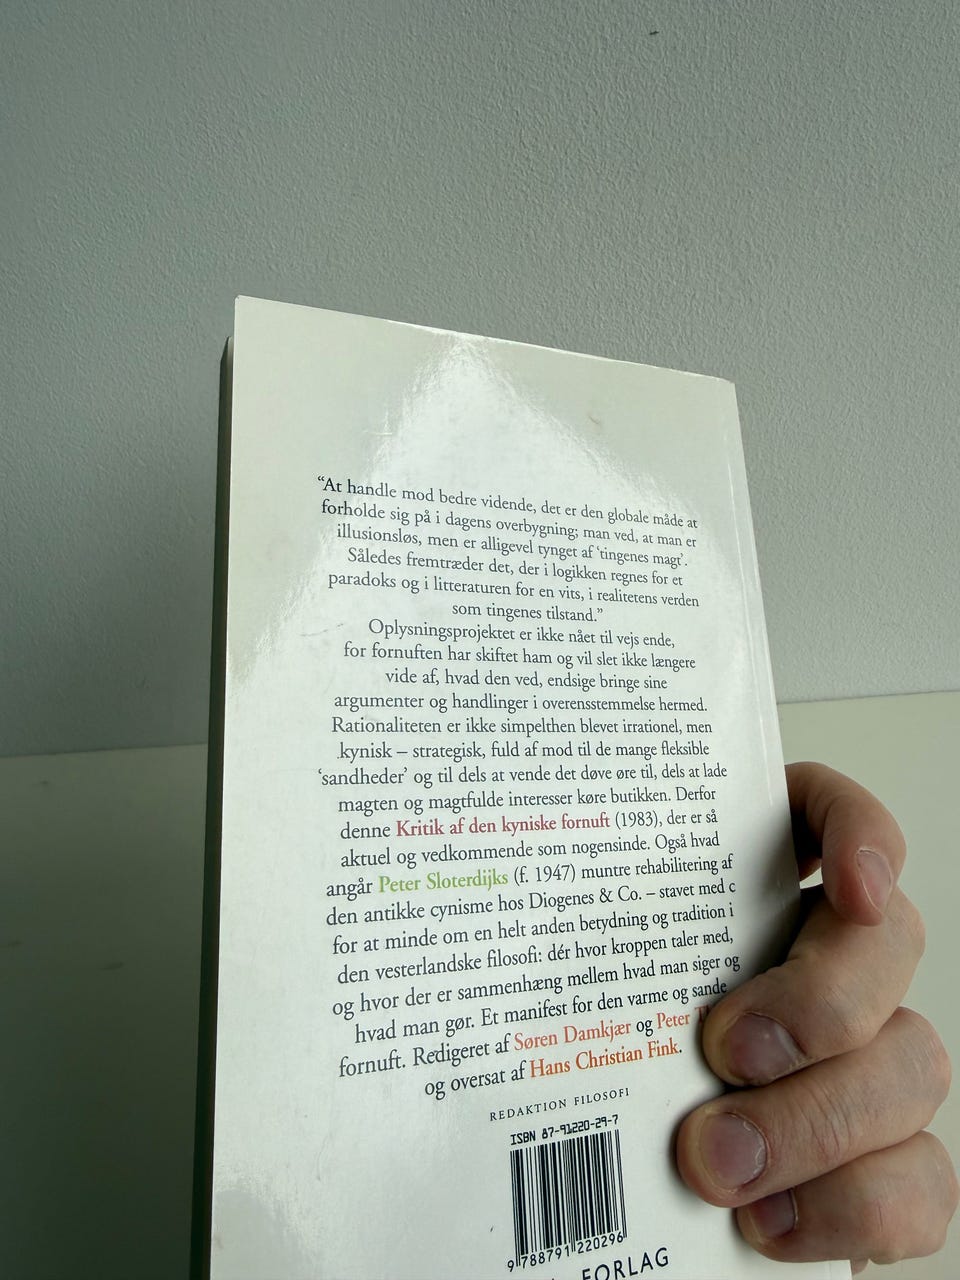 “At handle mod bedre vidende, det er den globale måde at
forholde sig på i dagens overbygning; man ved, at man er
illusionsløs, men er alligevel tynget af ‘tingenes magt’.
Således fremtræder det, der i logikken regnes for et
paradoks og i litteraturen for en vits, i realitetens verden
som tingenes tilstand.”
Oplysningsprojektet er ikke nået til vejs ende,
for fornuften har skiftet ham og vil slet ikke længere
vide af, hvad den ved, endsige bringe sine
argumenter og handlinger i overensstemmelse hermed.
Rationaliteten er ikke simpelthen blevet irrationel, men
kynisk – strategisk, fuld af mod til de mange fleksible
‘sandheder’ og til dels at vende det døve øre til, dels at lade
magten og magtfulde interesser køre butikken. Derfor
denne Kritik af den kyniske fornuft (1983), der er så
aktuel og vedkommende som nogensinde. Også hvad
angår Peter Sloterdijks (f. 1947) muntre rehabilitering af
den antikke cynisme hos Diogenes & Co. – stavet med c
for at minde om en helt anden betydning og tradition i
den vesterlandske filosofi: dér hvor kroppen taler med,
og hvor der er sammenhæng mellem hvad man siger og
hvad man gør. Et manifest for den varme og sande
fornuft. Redigeret af Søren Damkjær og Peter
og oversat af Hans Christian Fink.
REDAKTION FILOSOFI
ISBN 87-91220-29-7
9 788791 220296
FORLAG